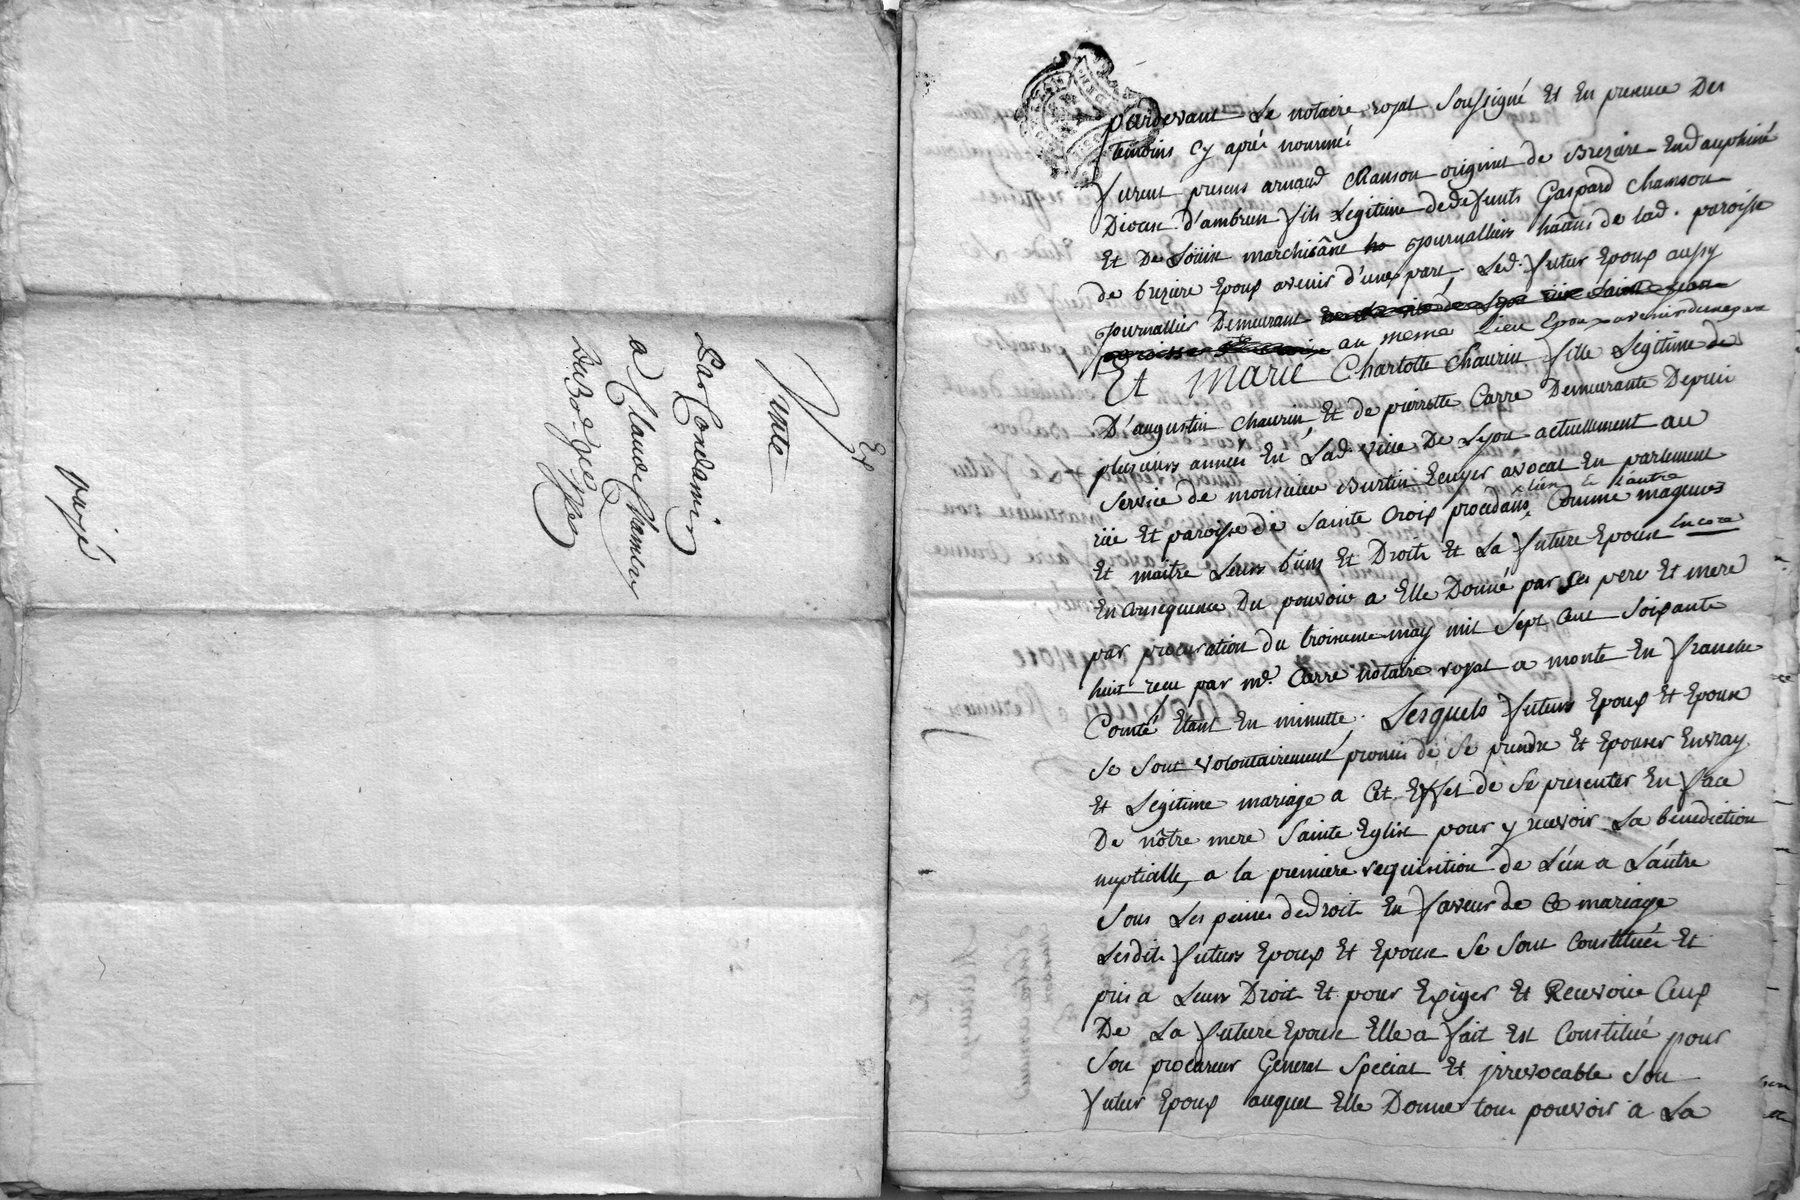 Ex
Vente
Par Condamin
a Claude Chemelu
Du 8bre 9e 1768
payé
pardevant Le notaire royal Soussigné Et En presence Des
temoins cy aprés nommés
furent presens arnaud Chanson originel de Brezier En dauphiné
Dioceze d'ambrun fils Legitime dedefunts Gaspard Chamson
Et De Loüise marchisâne Journalliers hâtns de lad. paroisse
de breziere Epoux avenir d'une part, Led. futur Epoux aussy
Journallier Demeurant
au meme Lieu Epoux avenir dune part
Et marie Charlotte Chaurin fille Legitime de
D'augustin Chaurin, Et de pierrette Carre Demeurante Depuis
plusieurs années En Lad. ville De Lyon actuellement au
Service de monsieur Burtin Ecuyer avocat En parlement
rüe Et paroisse de Sainte Croix procedans, Comme mageurs
lun Et Lautre
Et maitre Leurs biens Et Droits Et La future Epouse Encore
En consequence Du pouvoir a Elle Donné par Ses pere Et mere
par procuration du troisieme may mil Sept Cent Soixante
huit recu par me. Carre Notaire royal a monte En franche
Comté Etant En minutte. Lesquels futurs Epoux Et Epouse
Se Sont volontairement promis de Se prendre Et Epouser Envray
Et Legitime mariage a Cet Effet de Se presenter En face
De nôtre mere Sainte Eglise pour y recevoir La bénediction
nuptialle, a la premiere requisition de L'un a L'autre
Sous Les peines de droit En faveur de Ce mariage
Lesdits futurs Epoux Et Epouse Se Sont Constitués Et
pris a Leurs Droits Et pour Exiger Et Recevoir Ceux
De La future Epouse Elle a fait Est Constitué pour
Son procureur General Special Et jrrevocable Son
futur Epoux auquel Elle Donne tous pouvoir a La